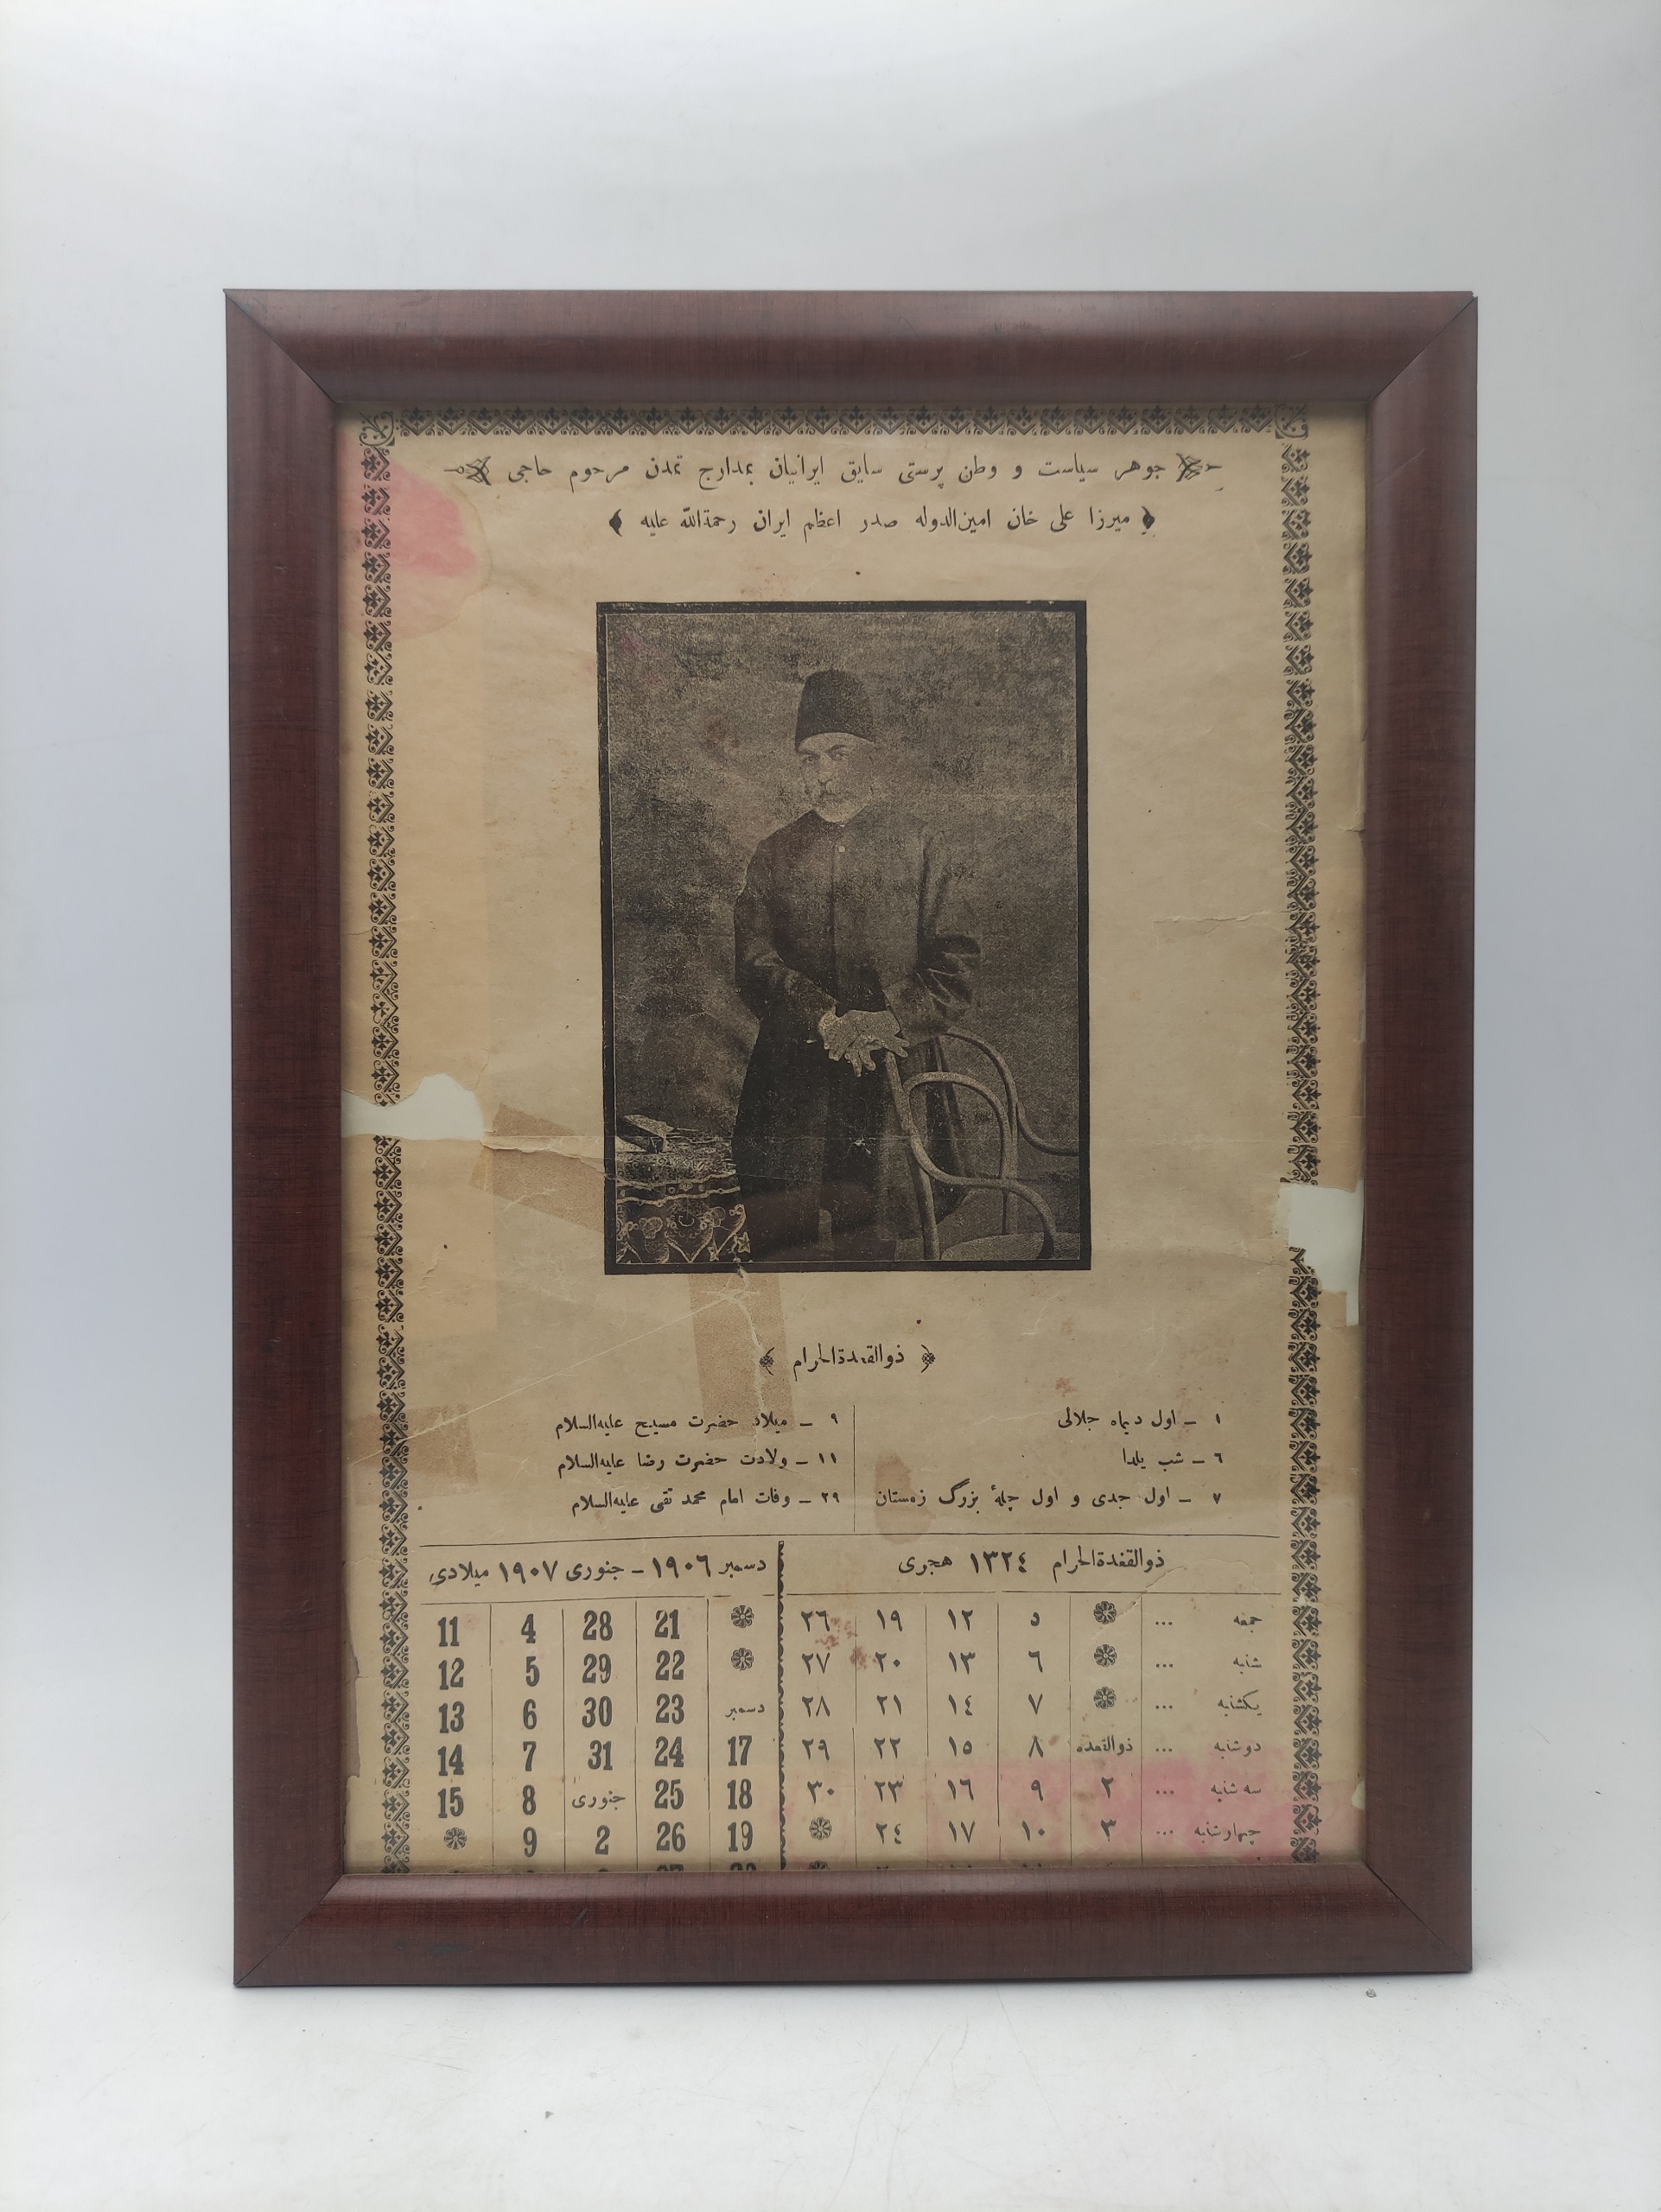 جوهر سیاست و وطن پرستی سایق ایرانیان بمدارج تمدن مرحوم حاجی
میرزا علی خان امین‌الدوله صدر اعظم ایران رحمةالله علیه
ذوالقعدةالحرام
۱ ـ اول دیماه جلالی
٦ ـ شب یلدا
۷ ـ اول جدی و اول چلهٔ بزرگ زمستان
۹ ـ میلاد حضرت مسیح علیه‌السلام
۱۱ ـ ولادت حضرت رضا علیه‌السلام
۲۹ ـ وفات امام محمد تقی علیه‌السلام
ذوالقعدةالحرام ۱۳۲٤ هجری
دسمبر ۱۹۰٦ ـ جنوری ۱۹۰۷ میلادی
جمعه ... ٥ ۱۲ ۱۹ ۲٦ 21 28 4 11
شنبه ... ٦ ۱۳ ۲۰ ۲۷ 22 29 5 12
یکشنبه ... ۷ ۱٤ ۲۱ ۲۸ دسمبر 23 30 6 13
دوشنبه ... ذوالقعده ۸ ۱٥ ۲۲ ۲۹ 17 24 31 7 14
سه شنبه ... ۲ ۹ ۱٦ ۲۳ ۳۰ 18 25 جنوری 8 15
چهارشنبه ... ۳ ۱۰ ۱۷ ۲٤ 19 26 2 9